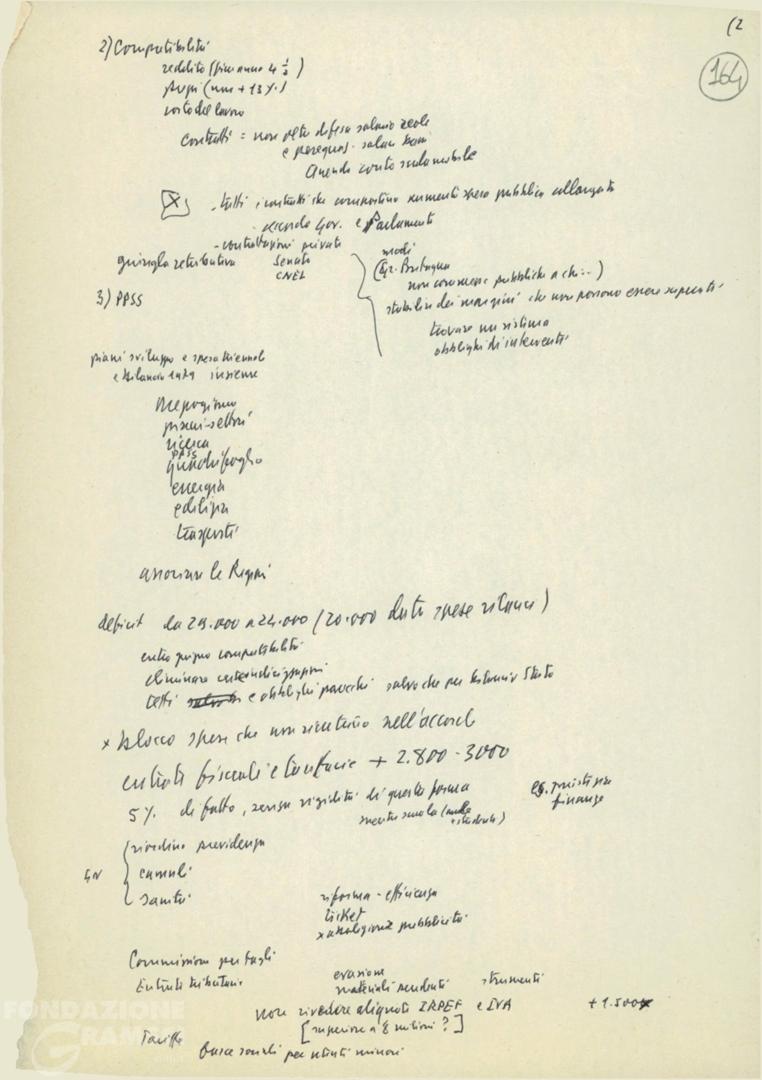 (2
164
2) Compatibilità
reddito (fine anno 4 ½)
prezzi (non + 13%)
costo del lavoro
Contratti = non oltre difesa salario reale
e perequaz. salari bassi
avendo conto scala mobile
- tutti i contratti che comportino aumenti spesa pubblica allargata
accordo Gov. e Parlamento
- contrattazioni private
giungla retributiva
Senato
CNEL
modi
(Gr. Bretagna
non commesse pubbliche a chi...)
stabilire dei margini che non possono essere superati
trovare un sistema
obblighi di intervento
3) PPSS
piani sviluppo e spesa triennale
e bilancio 1979 insieme
Mezzogiorno
piani-settori
ricerca
PPSS
quadrifoglio
energia
edilizia
trasporti
associare le Regioni
deficit da 29.000 a 24.000 (20.000 dati spese rilanci)
entro giugno compatibilità
eliminare
tetti e obblighi parecchi salvo che per Stato
x blocco spese che non rientrino nell'accordo
entrate fiscali e tariffarie + 2.800 - 3000
5% di fatto, senza rigidità di questa forma
es. giustizia
finanze
mentre scuola (
studenti)
Gov
riordino previdenza
cumuli
sanità
riforma - efficienza
ticket
x pubblicità
Commissione per tagli
Entrate tributarie
evasione
materiali pendenti strumenti
non rivedere aliquote IRPEF e IVA
+ 1.500
[superiore a 8 milioni ?]
Tariffe
fasce sociali per utenti minori
FONDAZIONE
GRAMSCI